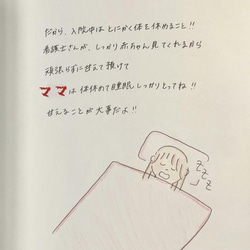 だから、入院中はとにかく体を休めること!!
看護士さんが、しっかり赤ちゃん見てくれるから
頑張らずに甘えて預けて
ママは体休めて睡眠しっかりとってね!!
甘えることが大事だよ!!
zzz